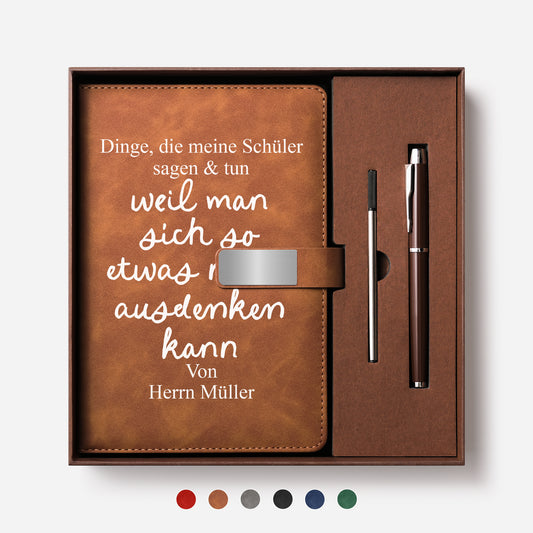 Dinge, die meine Schüler
sagen & tun
weil man
sich so
etwas
ausdenken
kann
Von
Herrn Müller